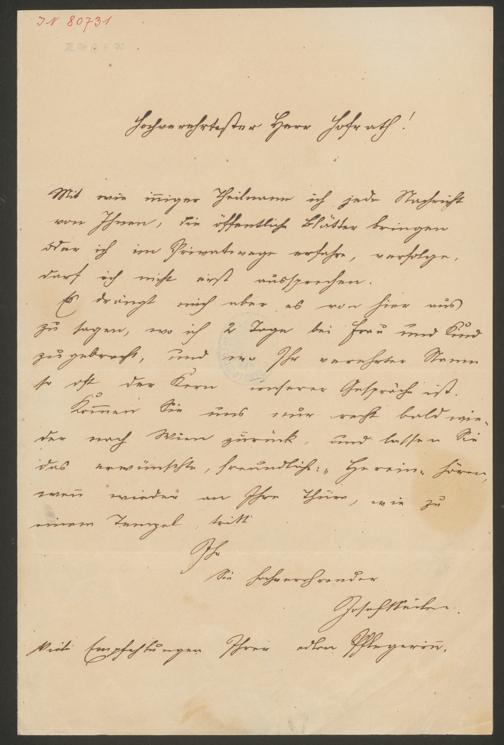 IN 80731
Hochverehrtester Herr Hofrath!
Mit wie iñiger Theilname ich jede Nachricht
von Ihnen, die öffentliche Blätter bringen
oder ich im Privatwege erfahre, verfolge,
darf ich nicht erst aussprechen.
Es drängt mich aber es von hier aus
zu sagen, wo ich 2 Tage bei Frau und Kind
zugebracht, und wo Ihr verehrter Name
so oft der Kern unserer Gespräche ist.
Kom̄en Sie uns nur recht bald wie-
der nach Wien zurück, und lassen Sie
das erwünschte, freundliche: „Herein“ hören,
weñ wieder an Ihre Thüre, wie zu
einem Tempel tritt
Ihr
Sie hochverehrender
Josef Weilen.
Viele Empfehlungen Ihrer edlen Pflegeriñ.